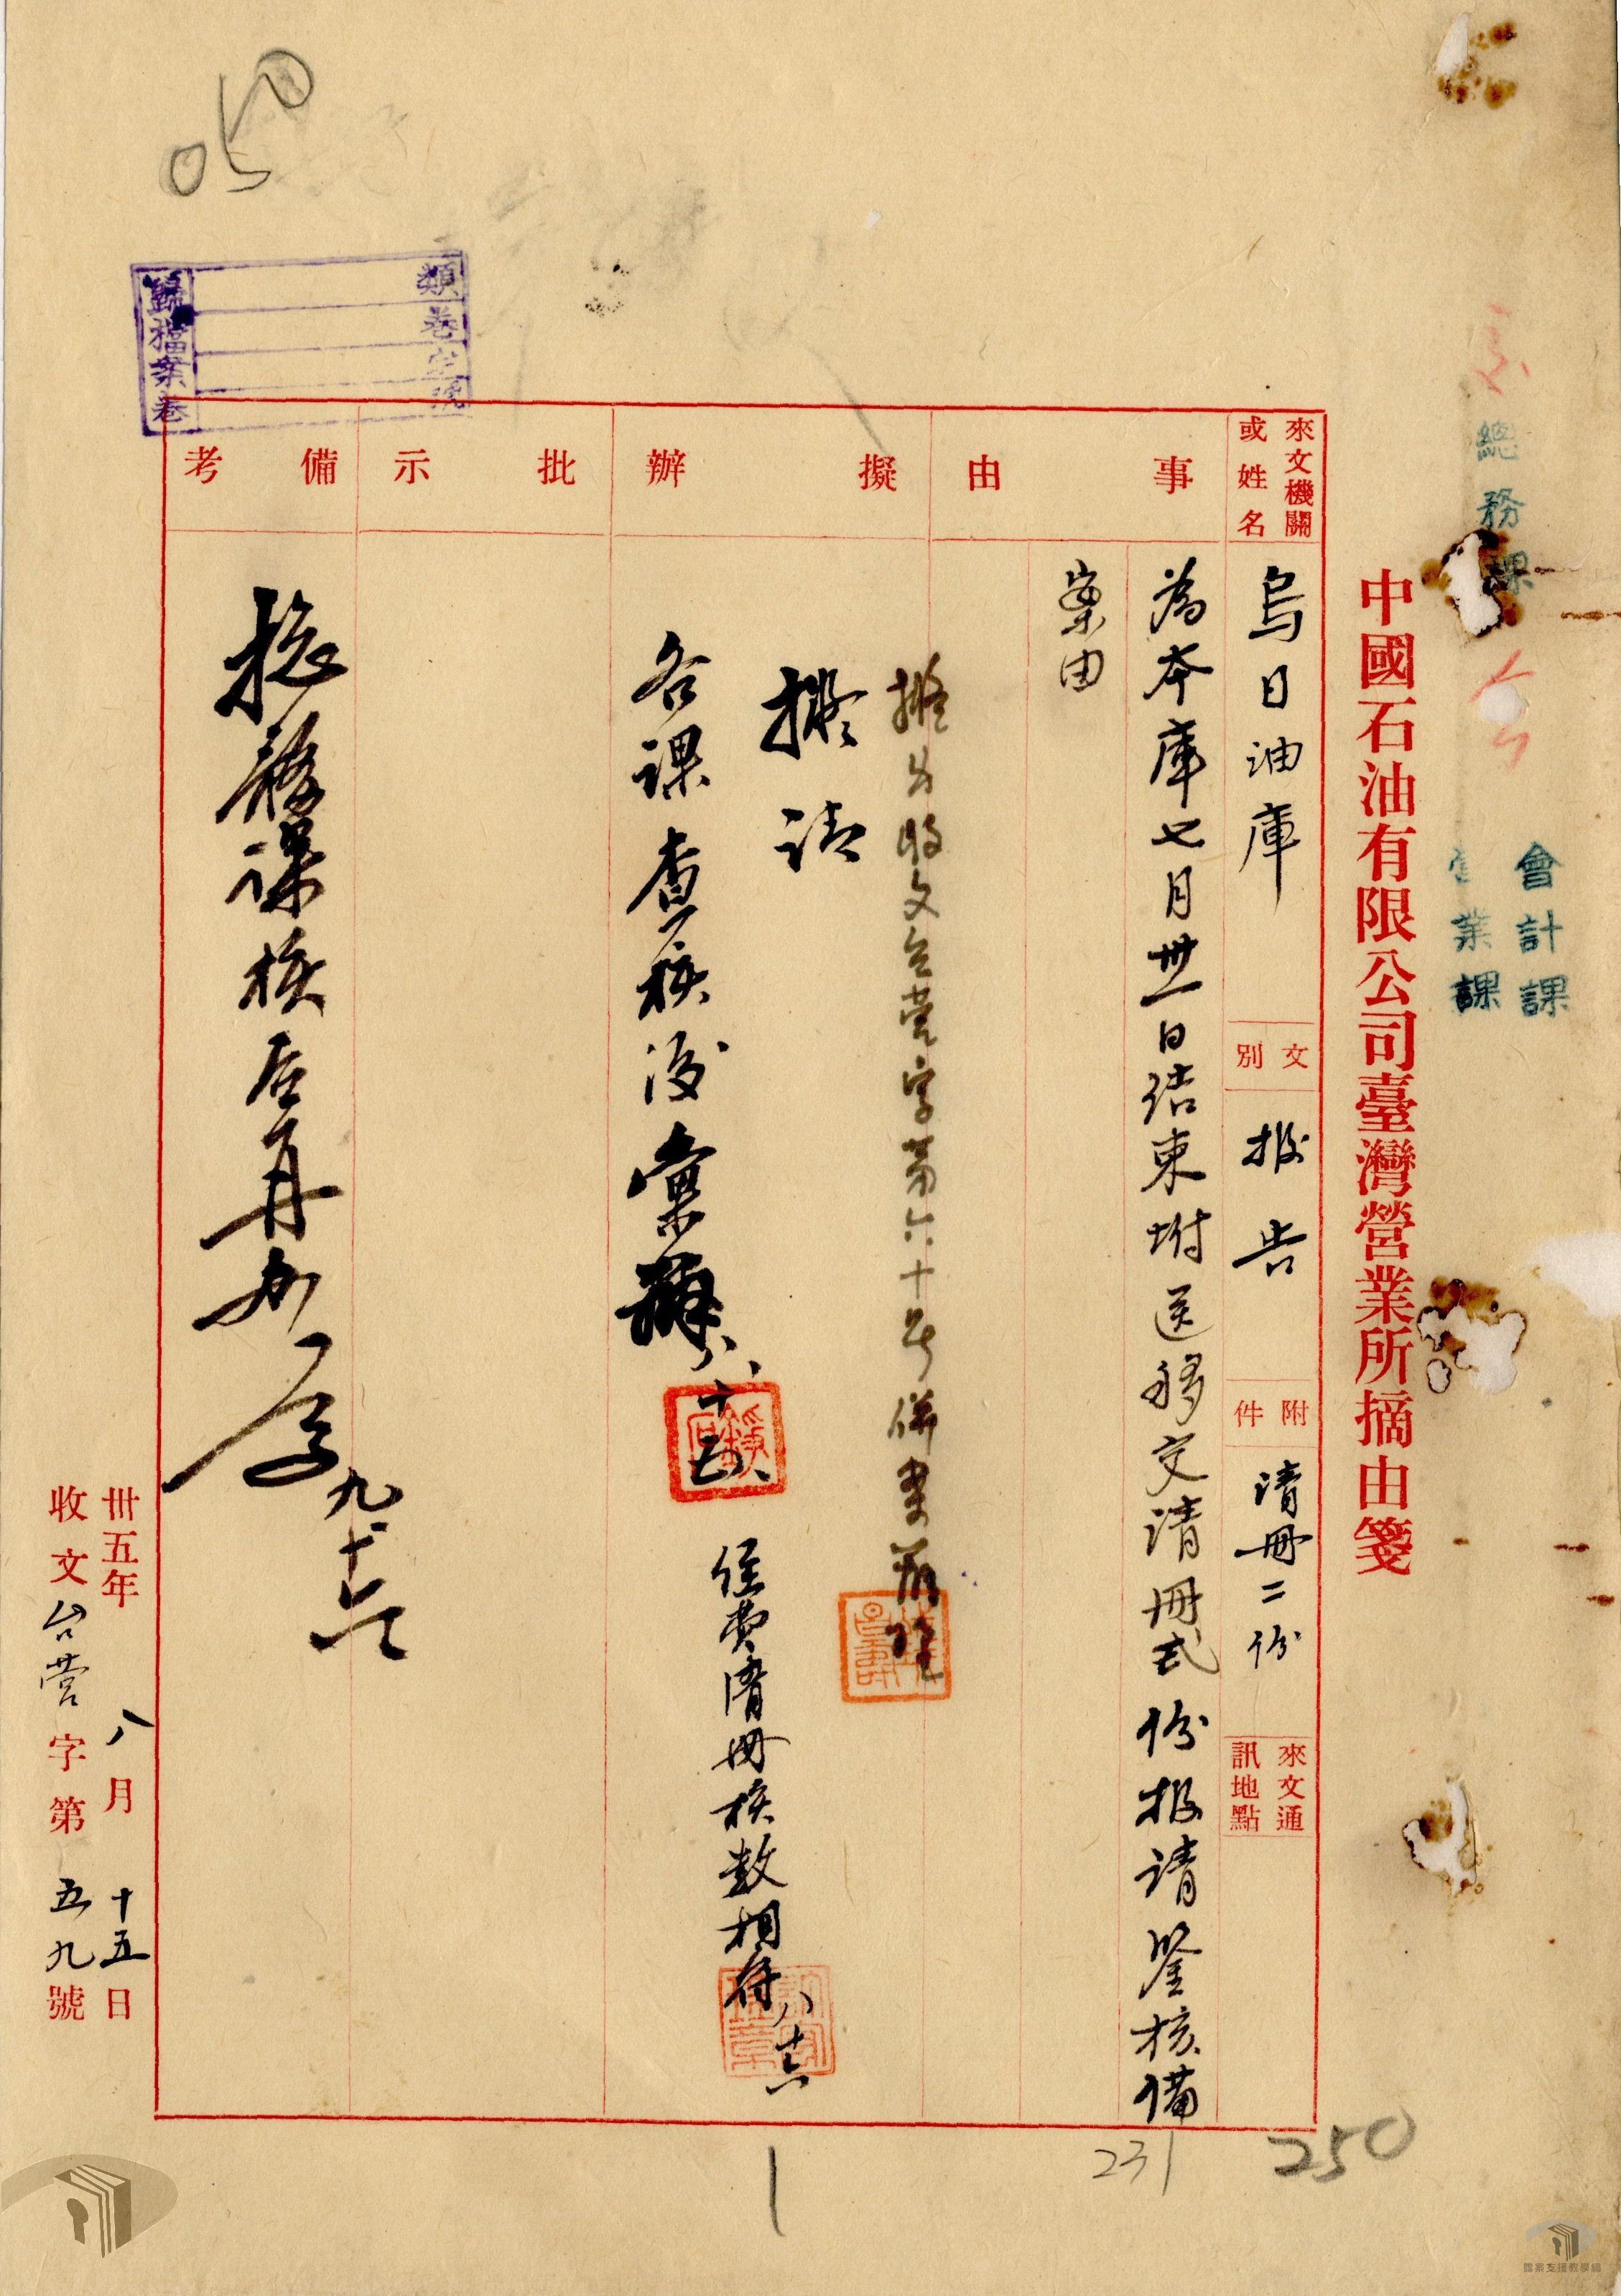 中國石油有限公司臺灣營業所摘由箋
總務課
會計課
營業課
來文機關或姓名
烏日油庫
文別
报告
附件
清冊二份
來文通訊地點
事由
為本庫七月卅一日结束坿送移交清冊式份报请鉴核備
案由
擬辦
擬与收文台营字第六十号併案
擬请
各课查核後彙辦 八、十五
經费清冊核数相符 八、十六
批示
備考
总務课核后再办
九、十六
卅五年八月十五日
收文台营字第五九號
類卷宗號
歸檔案卷
050
231
250
檔案支援教學網